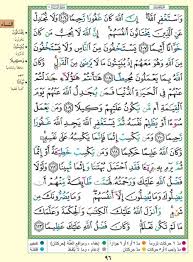 وَٱسْتَغْفِرِ ٱللَّهَ إِنَّ ٱللَّهَ كَانَ غَفُورًا رَّحِيمًا ١٠٦ وَلَا تُجَٰدِلْ
عَنِ ٱلَّذِينَ يَخْتَانُونَ أَنفُسَهُمْ إِنَّ ٱللَّهَ لَا يُحِبُّ مَن كَانَ
خَوَّانًا أَثِيمًا ١٠٧ يَسْتَخْفُونَ مِنَ ٱلنَّاسِ وَلَا يَسْتَخْفُونَ
مِنَ ٱللَّهِ وَهُوَ مَعَهُمْ إِذْ يُبَيِّتُونَ مَا لَا يَرْضَىٰ مِنَ ٱلْقَوْلِ وَكَانَ
ٱللَّهُ بِمَا يَعْمَلُونَ مُحِيطًا ١٠٨ هَٰٓأَنتُمْ هَٰٓؤُلَآءِ جَٰدَلْتُمْ
عَنْهُمْ فِى ٱلْحَيَوٰةِ ٱلدُّنْيَا فَمَن يُجَٰدِلُ ٱللَّهَ عَنْهُمْ يَوْمَ
ٱلْقِيَٰمَةِ أَم مَّن يَكُونُ عَلَيْهِمْ وَكِيلًا ١٠٩ وَمَن يَعْمَلْ
سُوٓءًا أَوْ يَظْلِمْ نَفْسَهُۥ ثُمَّ يَسْتَغْفِرِ ٱللَّهَ يَجِدِ ٱللَّهَ غَفُورًا
رَّحِيمًا ١١٠ وَمَن يَكْسِبْ إِثْمًا فَإِنَّمَا يَكْسِبُهُۥ عَلَىٰ
نَفْسِهِۦ وَكَانَ ٱللَّهُ عَلِيمًا حَكِيمًا ١١١ وَمَن يَكْسِبْ خَطِيٓـَٔةً
أَوْ إِثْمًا ثُمَّ يَرْمِ بِهِۦ بَرِيٓـًٔا فَقَدِ ٱحْتَمَلَ بُهْتَٰنًا وَإِثْمًا
مُّبِينًا ١١٢ وَلَوْلَا فَضْلُ ٱللَّهِ عَلَيْكَ وَرَحْمَتُهُۥ لَهَمَّت
طَّآئِفَةٌ مِّنْهُمْ أَن يُضِلُّوكَ وَمَا يُضِلُّونَ إِلَّآ أَنفُسَهُمْ
وَمَا يَضُرُّونَكَ مِن شَىْءٍ وَأَنزَلَ ٱللَّهُ عَلَيْكَ ٱلْكِتَٰبَ وَٱلْحِكْمَةَ
وَعَلَّمَكَ مَا لَمْ تَكُن تَعْلَمُ وَكَانَ فَضْلُ ٱللَّهِ عَلَيْكَ عَظِيمًا ١١٣
٩٦